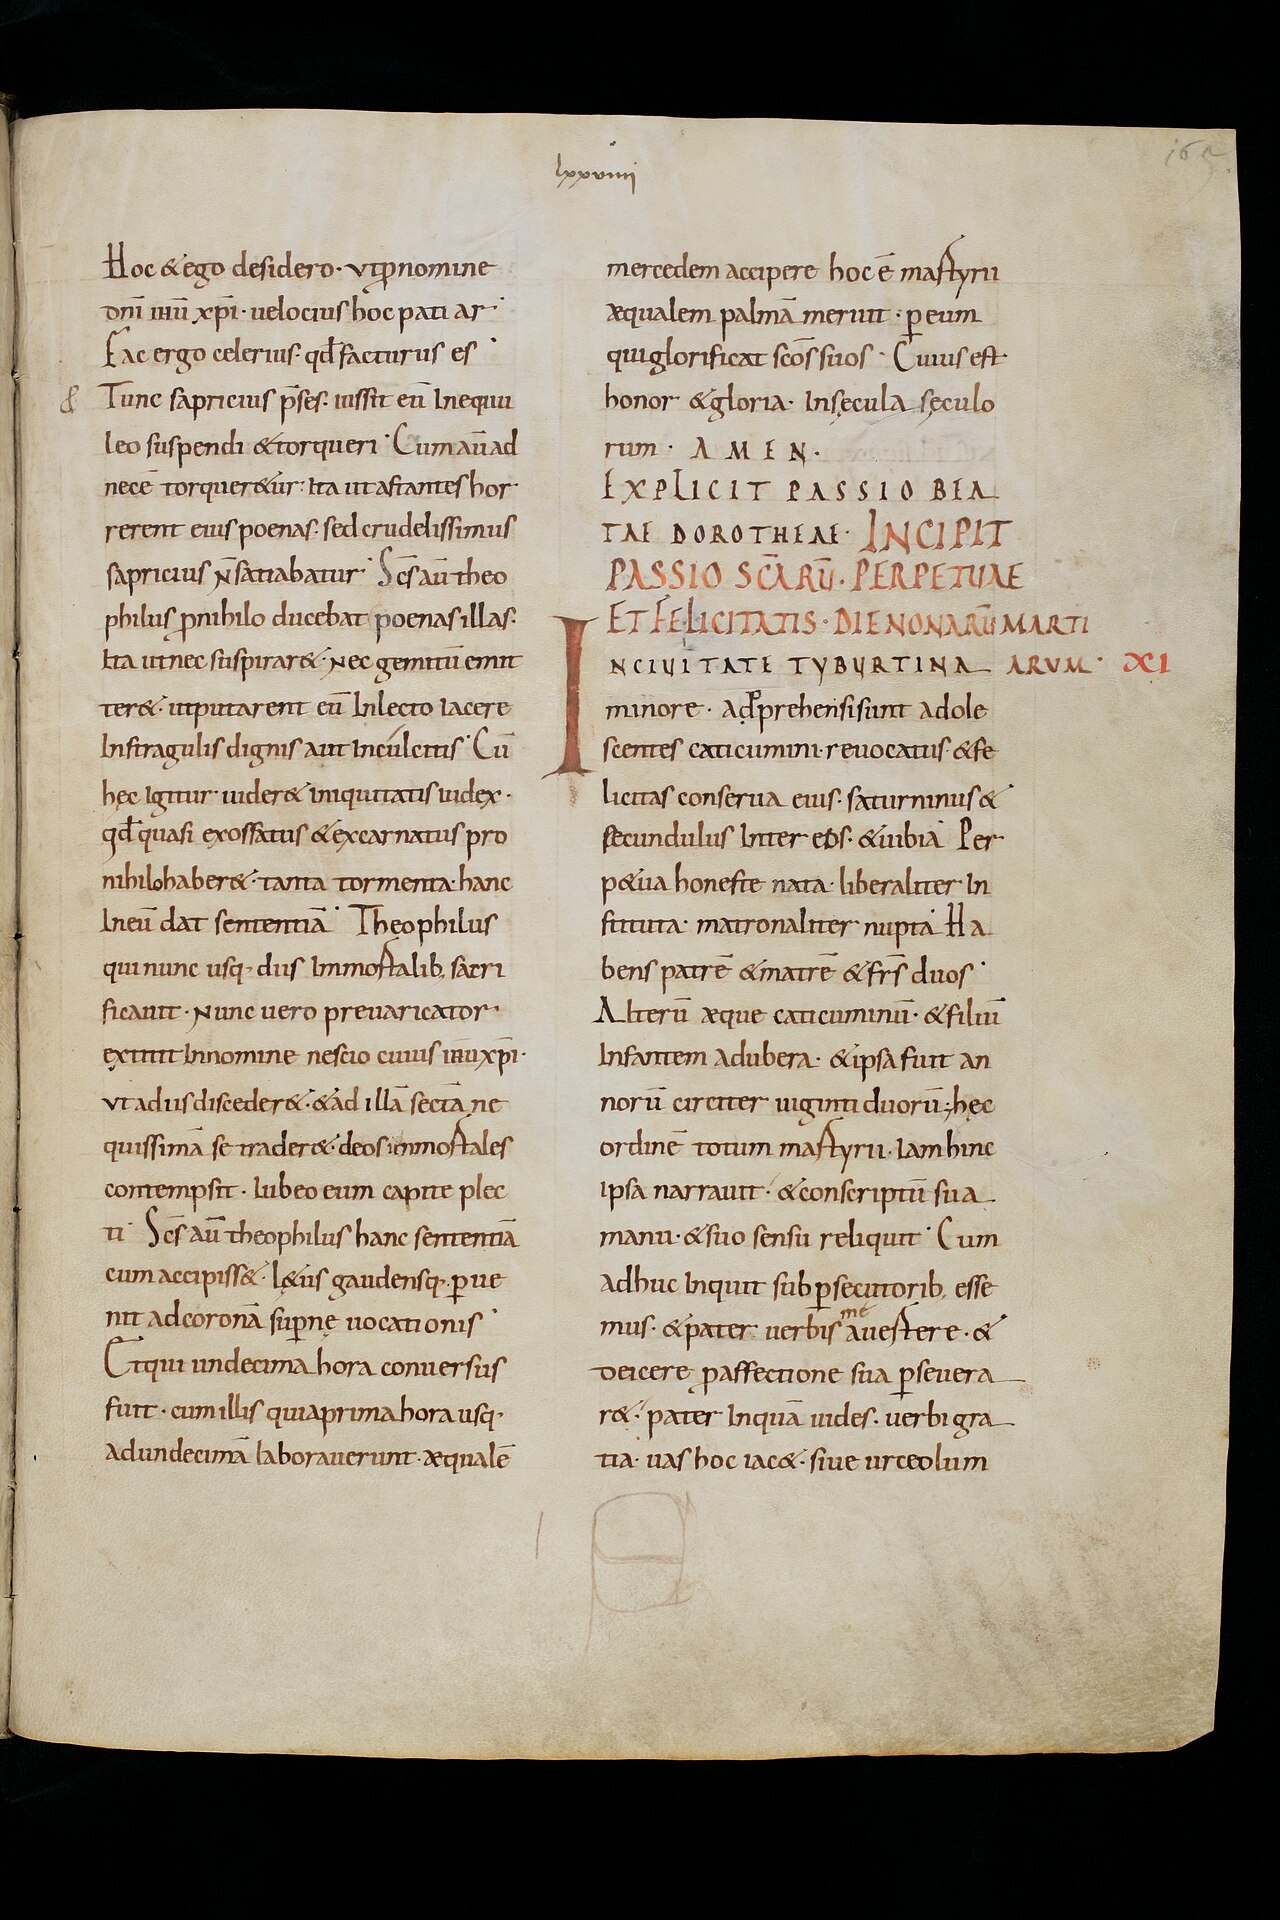 lxxviiii
165
Hoc & ego desidero · vt ꝓ nomine
dn̄i ih̄u xp̄i · uelocius hoc patiar ·
Fac ergo celerius · qđ facturus es ·
& Tunc sapricius p̄ses · iussit eū In equu
leo suspendi & torqueri · Cum aū ad
necē torquer&ur · Ita ut astantes hor
rerent eius poenas · sed crudelissimus
sapricius n̄ satiabatur · Sc̄s aū theo
philus ꝓ nihilo ducebat poenas illas ·
Ita ut nec suspirar& · nec gemitū emit
ter& · ut putarent eū In lecto Iacere
In stragulis dignis aut In culcitis · Cū
hęc Igitur uider& iniquitatis iudex ·
qđ quasi exossatus & excarnatus pro
nihilo haber& · tanta tormenta · hanc
In eū dat sententiā · Theophilus
qui nunc usq · diis Immortalib, sacri
ficauit · nunc uero preuaricator
extitit In nomine nescio cuius ih̄u xp̄i ·
vt ad iis disceder& · & ad illā sectā ne
quissimā se trader& · deos immortales
contempsit · Iubeo eum capite plec
ti · Sc̄s aū theophilus hanc sententiā
cum accipiss& · l&us gaudensq · ꝑue
nit ad coronā supernę uocationis ·
Et qui undecima hora conuersus
fuit · cum illis qui a prima hora usq ·
ad undecimā laborauerunt · æqualē
mercedem accipere hoc ē martyrii
æqualem palmā meruit · ꝑ eum
qui glorificat sc̄os suos · Cuius est
honor & gloria · In sęcula sęculo
rum · AMEN ·
EXPLICIT PASSIO BEA
TAE DOROTHEAE · INCIPIT
PASSIO SC̄ARŪ · PERPETUAE
ET FELICITATIS · DIE NONARŪ MARTI
IN CIUITATE TYBURTINA ARUM · XI
minore · adprehensi sunt adole
scentes caticumini · reuocatus · & fe
licitas conserua eius · saturninus &
secundulus Inter eos · & uibia Per
p&ua honeste nata · liberaliter In
stituta · matronaliter nupta · Ha
bens patrē & matrē & fr̄s duos ·
Alterū æque caticuminū · & filiū
Infantem ad ubera · & ipsa fuit an
norū circiter uiginti duorū ; hęc
ordinē totum martyrii · Iam hinc
ipsa narrauit · & conscriptū sua
manu · & suo sensu reliquit · Cum
adhuc Inquit sub ꝑsecutorib, esse
mus · & pater uerbis me auertere · &
deicere ꝓ affectione sua ꝑseuera
r& · pater Inquā uides · uerbi gra
tia · uas hoc iac& · siue urceolum